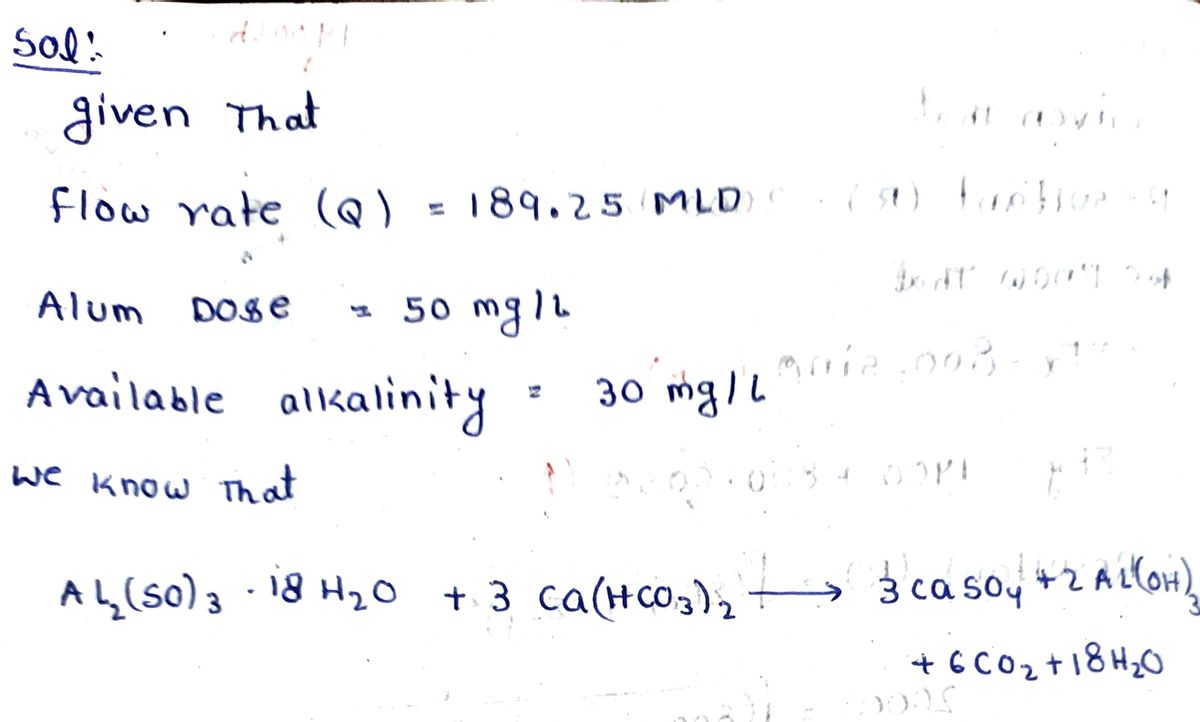 Sol:
given That
flow rate (Q) = 189.25 MLD
Alum Dose = 50 mg/L
Available alkalinity = 30 mg/L
we know That
AL₂(SO)₃ · 18 H₂O + 3 Ca(HCO₃)₂ → 3 CaSO₄ + 2 AL(OH)₃
+ 6 CO₂ + 18 H₂O